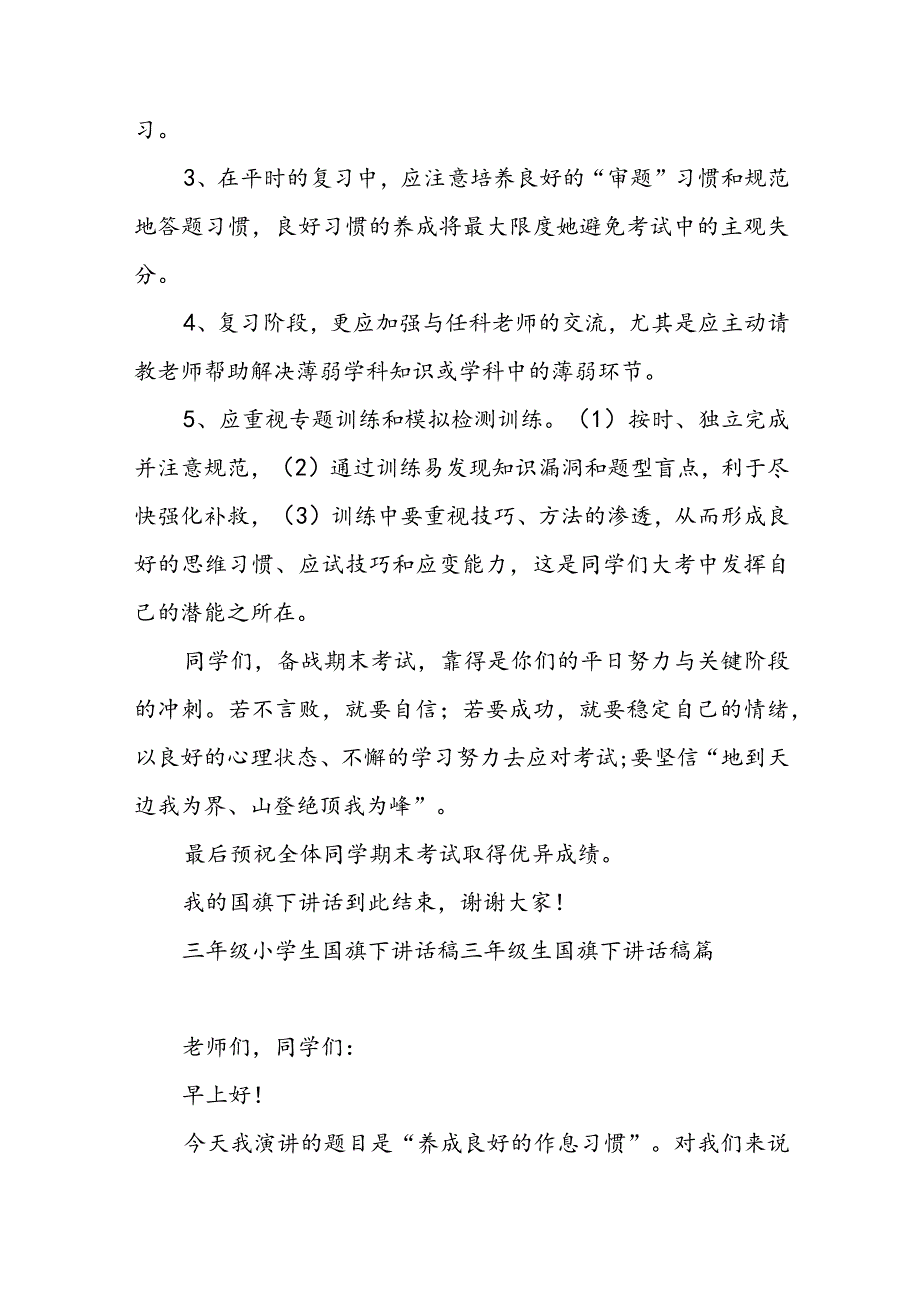 习。
3、在平时的复习中，应注意培养良好的“审题”习惯和规范
地答题习惯，良好习惯的养成将最大限度她避免考试中的主观失
分。
4、复习阶段，更应加强与任科老师的交流，尤其是应主动请
教老师帮助解决薄弱学科知识或学科中的薄弱环节。
5、应重视专题训练和模拟检测训练。（1）按时、独立完成
并注意规范，（2）通过训练易发现知识漏洞和题型盲点，利于尽
快强化补救，（3）训练中要重视技巧、方法的渗透，从而形成良
好的思维习惯、应试技巧和应变能力，这是同学们大考中发挥自
己的潜能之所在。
同学们，备战期末考试，靠得是你们的平日努力与关键阶段
的冲刺。若不言败，就要自信；若要成功，就要稳定自己的情绪，
以良好的心理状态、不懈的学习努力去应对考试;要坚信“地到天
边我为界、山登绝顶我为峰”。
最后预祝全体同学期末考试取得优异成绩。
我的国旗下讲话到此结束，谢谢大家！
三年级小学生国旗下讲话稿三年级生国旗下讲话稿篇
老师们，同学们：
早上好！
今天我演讲的题目是“养成良好的作息习惯”。对我们来说